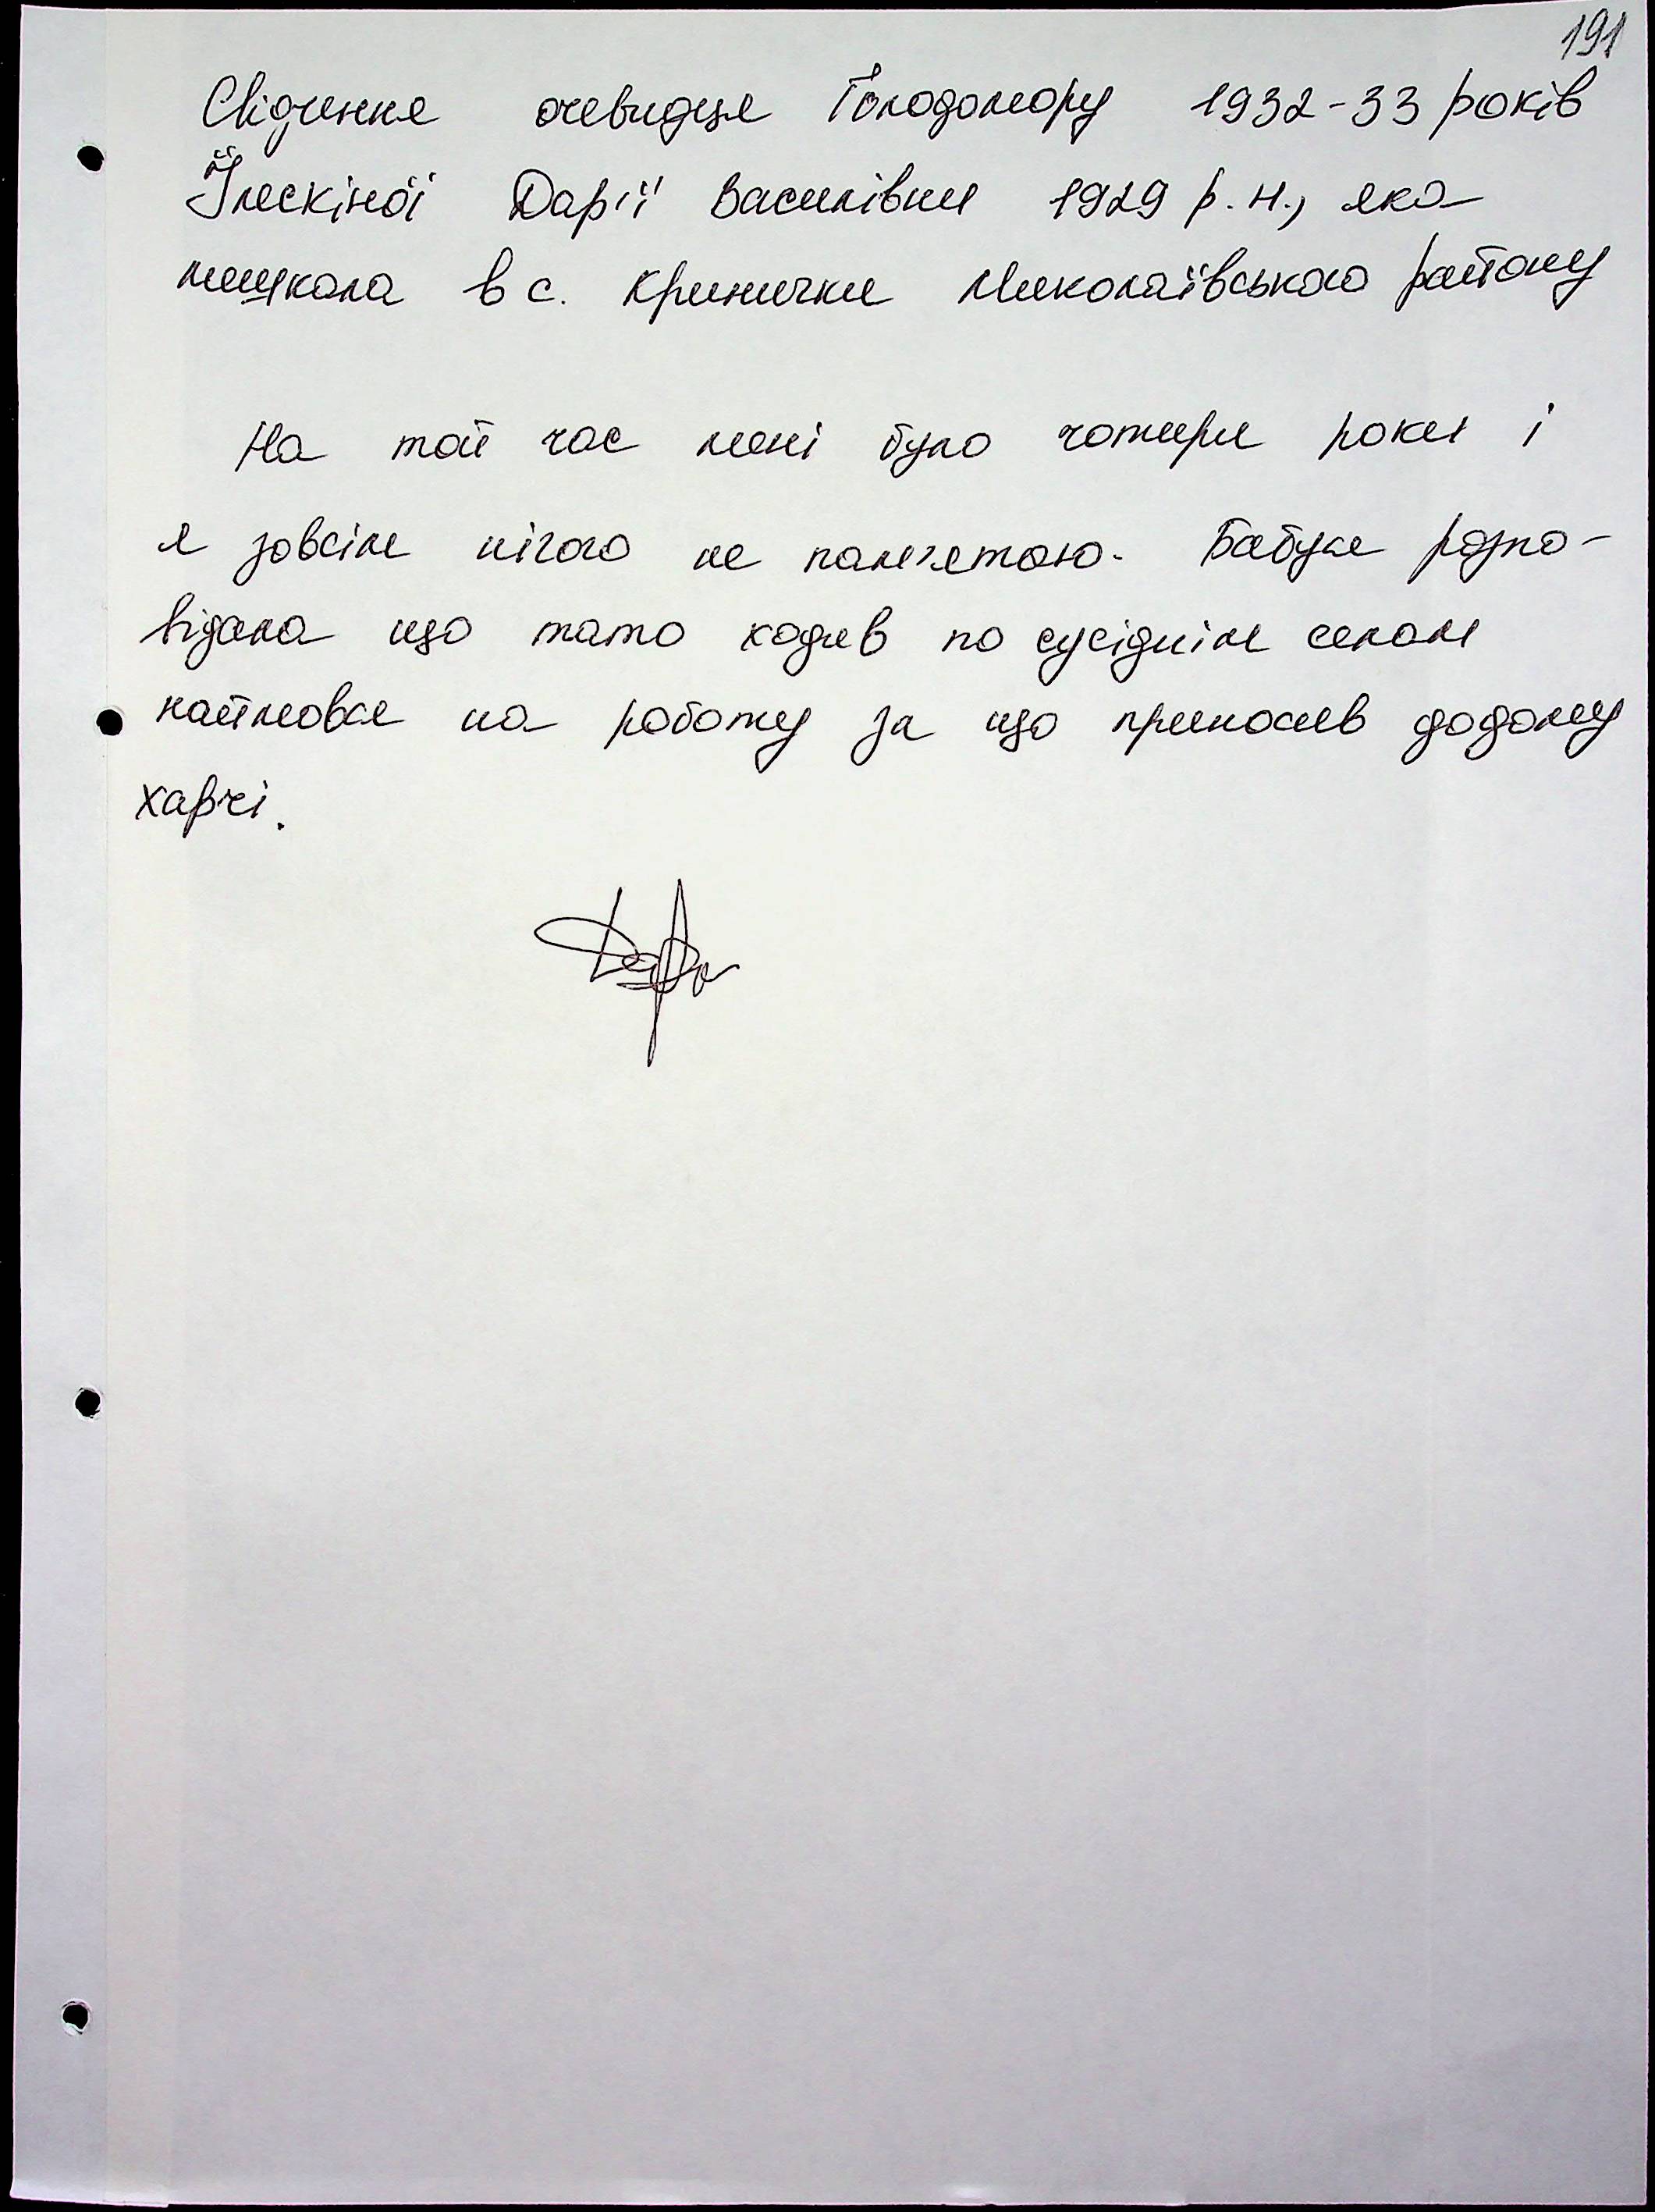 191
Свідчення очевидця Голодомору 1932-33 років
Дарії Василівни 1929 р. н., яка
мешкала в с. Кринички Миколаївського району
На той час мені було чотири роки і
я зовсім нічого не пам'ятаю. Бабуся розпо-
відала що тато ходив по сусіднім селам
наймався на роботу за що приносив додому
харчі.